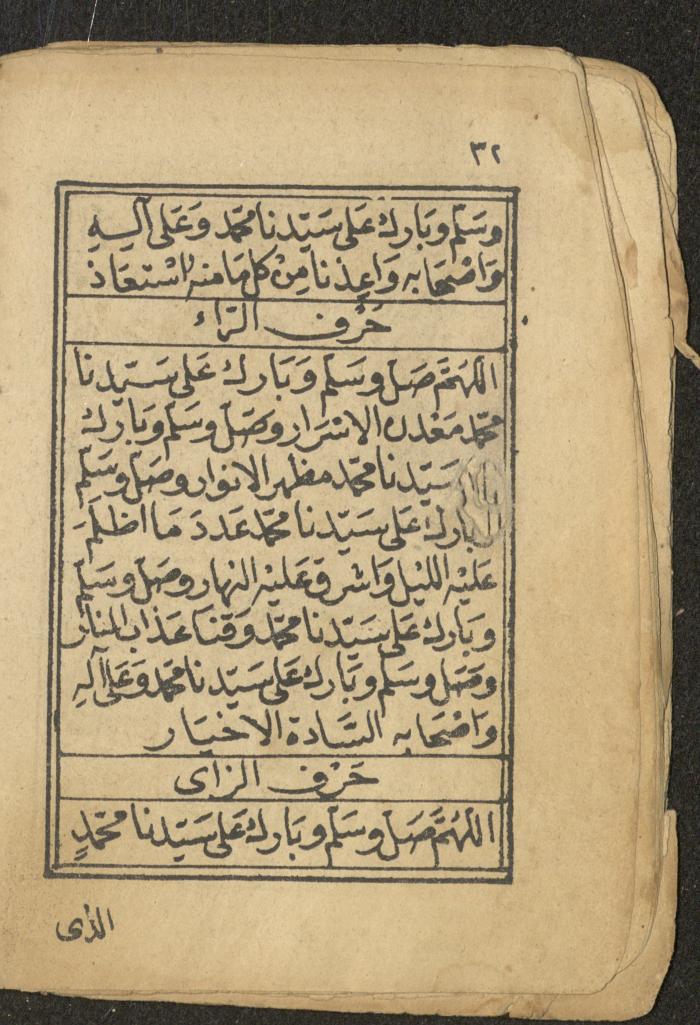 ٣٢
وسَلّم وبَارك عَلى سَيّدنا محمّد وَعَلى آلِهِ
وَاصْحَابه وَاعِذنا مِنْ كل مَا منهُ اسْتعَاذ
حَرْف الرّاء
اللهُمَّ صَلّ وسَلّم وَبَارك عَلى سَيّدنا
محمّد مَعْدن الاسْرَار وصَلّ وسَلّم وبَارك
سَيّدنا محمّد مظهر الانوار وصَلّ وسَلّم
وبَارك عَلى سَيّدنا محمّد عَددَ مَا اظلَمَ
عَليْه الليْل وَاشرق عَليْه النهار وصَلّ وسَلّم
وبَارك عَلى سَيّدنا محمّد وَقنا عَذاب النار
وصَلّ وسَلّم وبَارك عَلى سَيّدنا محمّد وَعَلى آلهِ
وَاصْحَابه السَّادة الاخيَار
حَرْف الزاى
اللهُمَّ صَلّ وسَلّم وبَارك عَلى سَيّدنا محمّدٍ
الذى